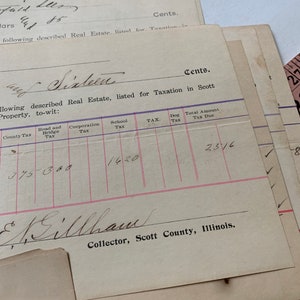 85
Cents.
following described Real Estate, listed for Taxation
and Sixteen
Cents.
llowing described Real Estate, listed for Taxation in Scott
Property, to-wit:
County Tax Road and Bridge Tax Corporation Tax School Tax TAX. Dog Tax Total Amount Tax Due
375 300 1620 2316
E. N. Gillham
Collector, Scott County, Illinois.